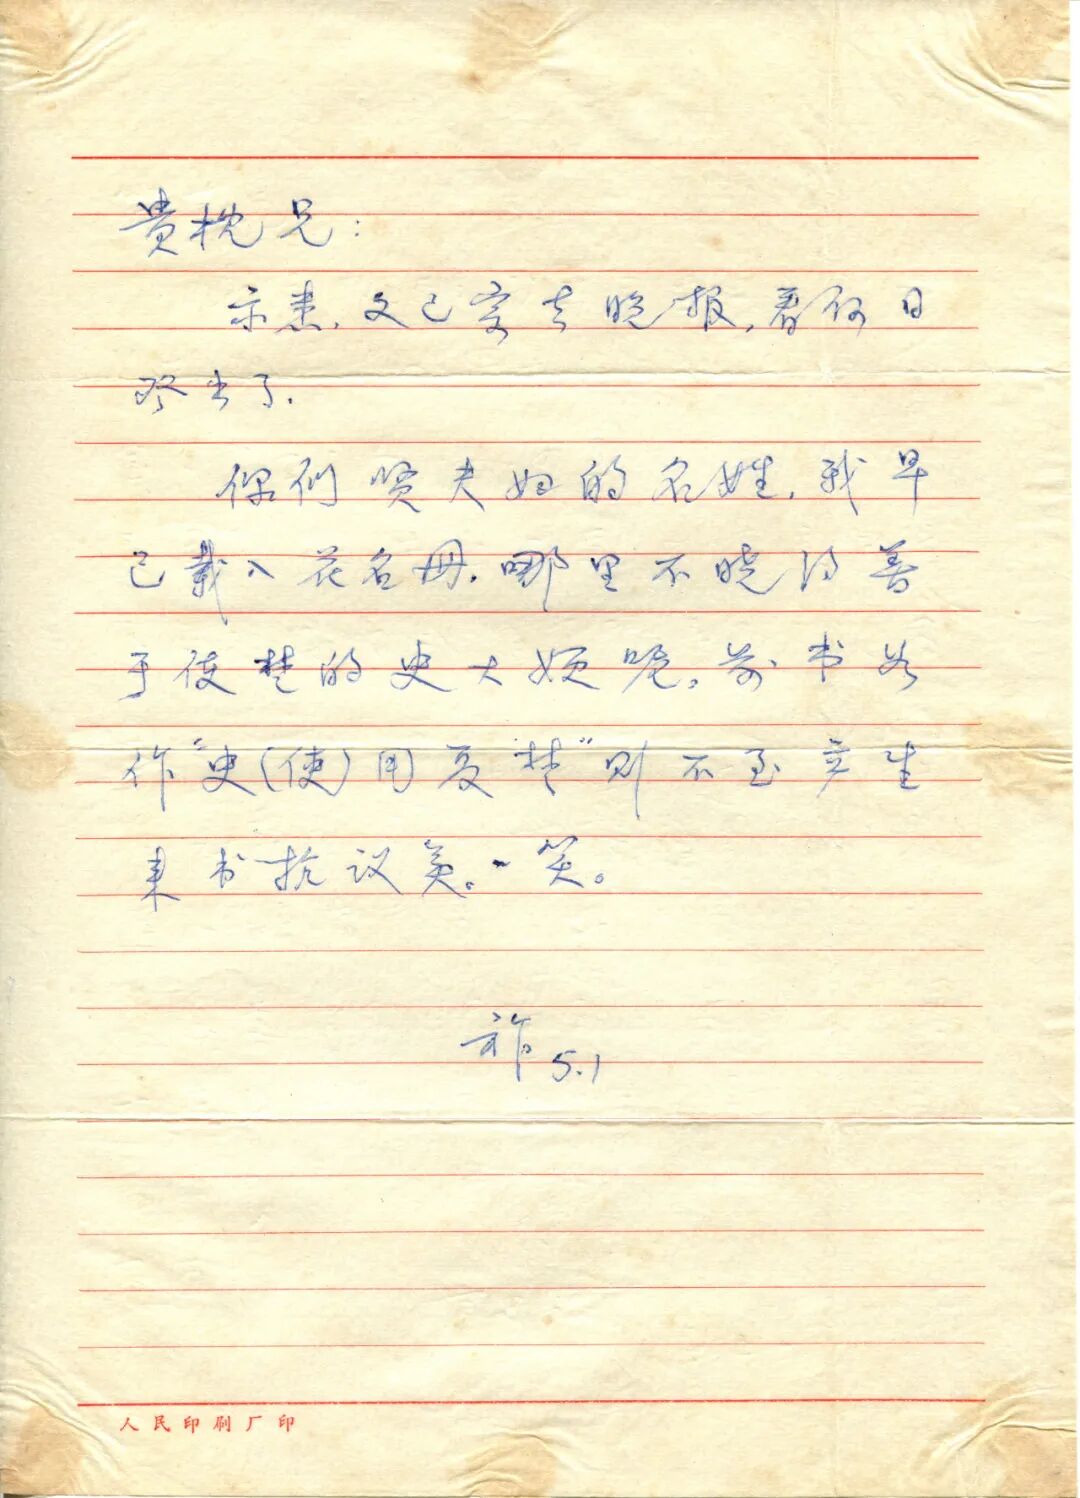 贵枕兄：
示悉，文已寄去晚报，看何日
登出了.
你们贤夫妇的名姓，我早
已载入花名册。哪里不晓得善
于使楚的史大嫂呢。前书如
作“史(使)用夏楚”则不至产生
来书抗议矣。一笑。
祚 5.1
人民印刷厂印